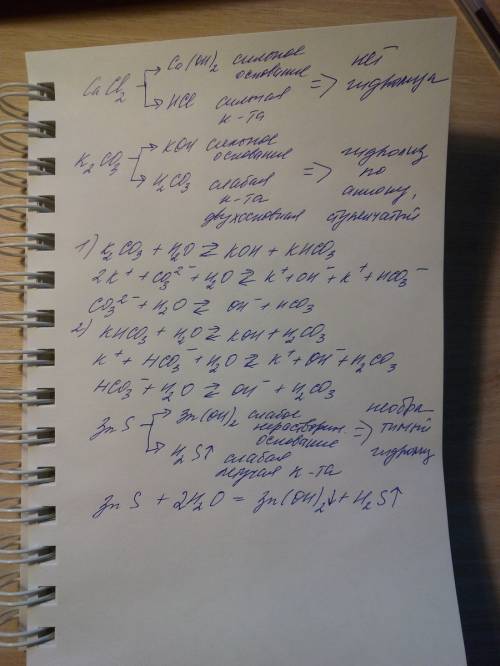 CaCl2 → Ca(OH)2 сильное основание
→ HCl сильная к-та
=> нет гидролиза
K2CO3 → KOH сильное основание
→ H2CO3 слабая к-та двухосновная
=> гидролиз по аниону, ступенчатый
1) K2CO3 + H2O ⇄ KOH + KHCO3
2K+ + CO3^2- + H2O ⇄ K+ + OH- + K+ + HCO3-
CO3^2- + H2O ⇄ OH- + HCO3
2) KHCO3 + H2O ⇄ KOH + H2CO3
K+ + HCO3- + H2O ⇄ K+ + OH- + H2CO3
HCO3- + H2O ⇄ OH- + H2CO3
ZnS → Zn(OH)2 слабое нерастворим. основание
→ H2S↑ слабая летучая к-та
=> необратимый гидролиз
ZnS + 2H2O = Zn(OH)2↓ + H2S↑